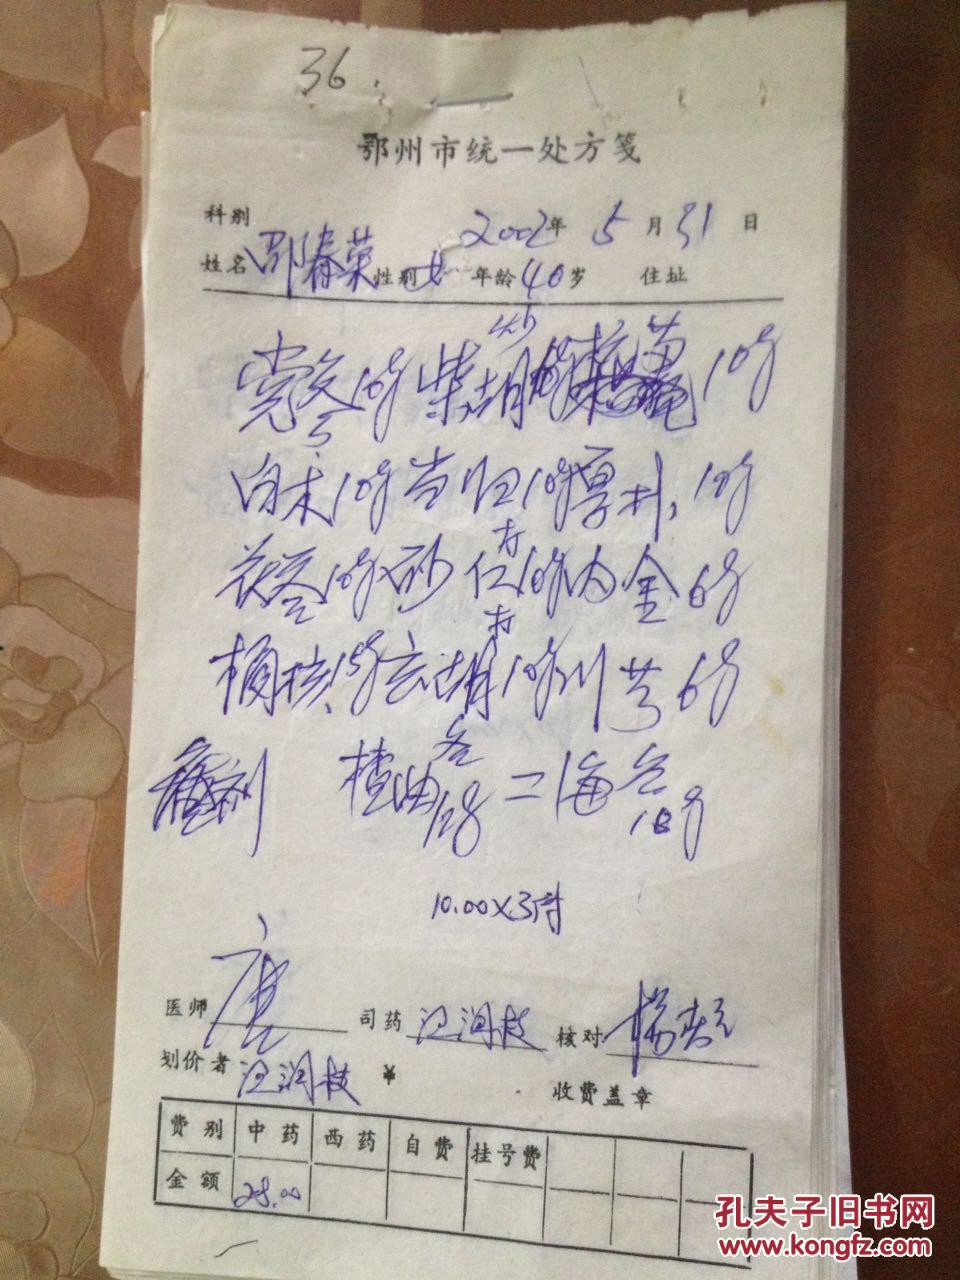 36
鄂州市统一处方笺
科别 2002年 5月31日
姓名 邵春荣 性别 女 年龄 40岁 住址
炒
党参10g 柴胡10g 10g
白术10g 当归10g 厚朴10g
打
茯苓10g 砂仁10g 内金6g
打
桶核15g 玄胡10g 川芎6g
楂曲各12g 二海各10g
10.00×3付
医师 唐 司药 汪润枝 核对 杨
划价者 汪润枝 ¥ 收费盖章
费别 中药 西药 自费 挂号费
金额 28.00
孔夫子旧书网
www.kongfz.com